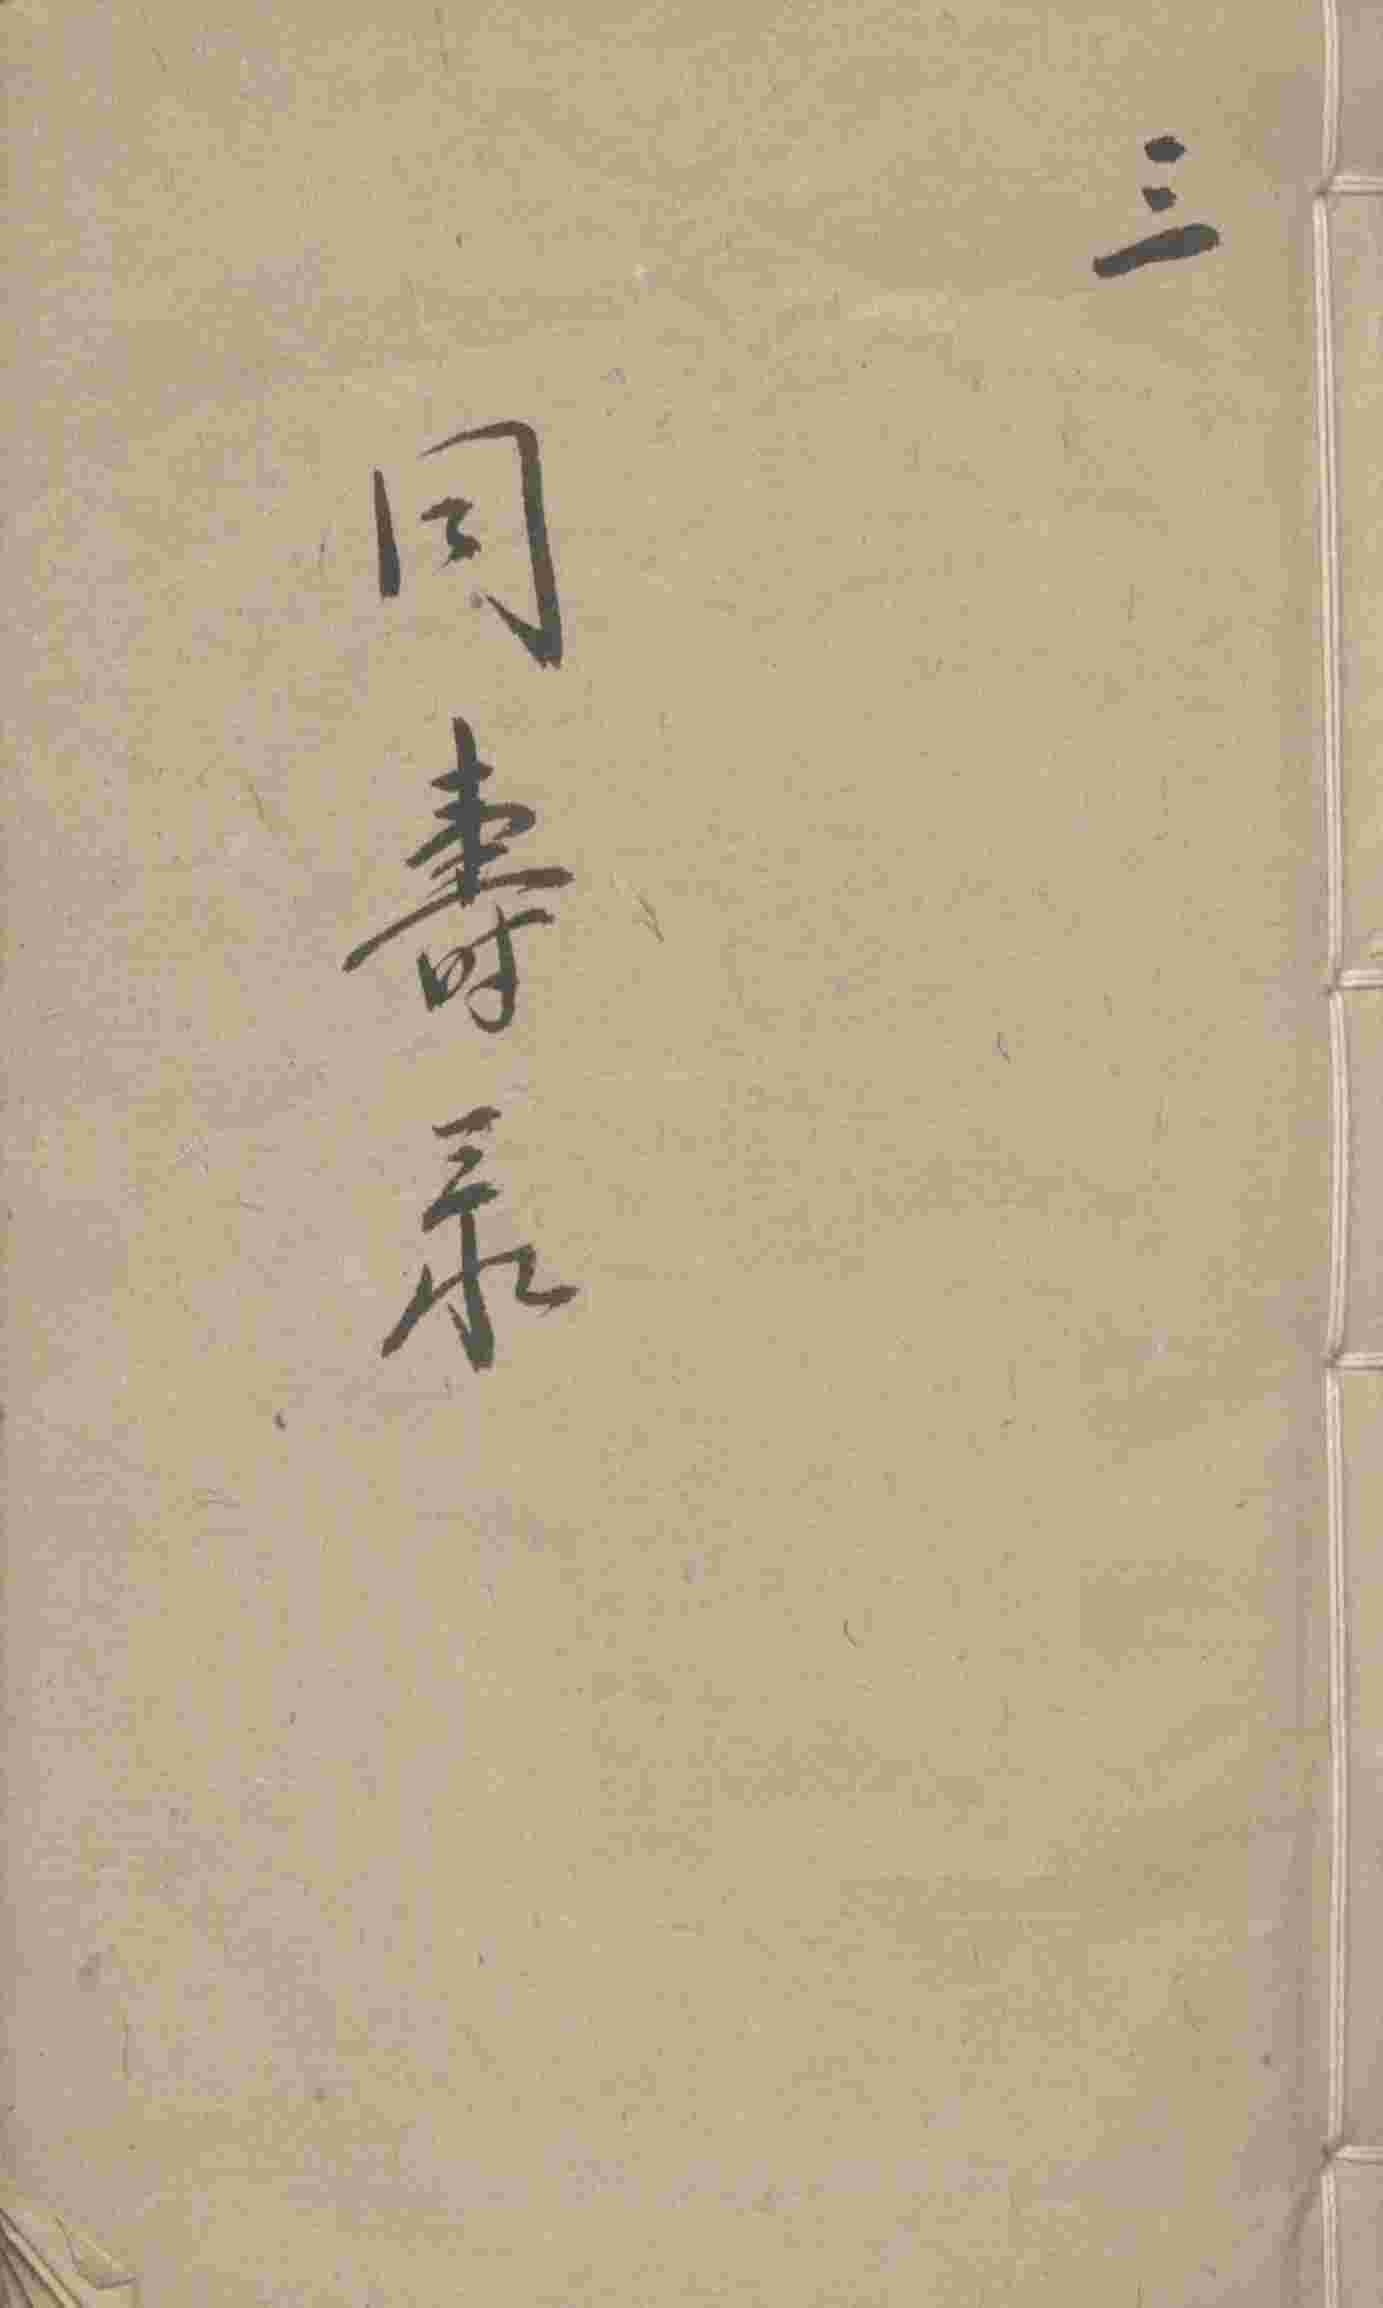 三
同壽录